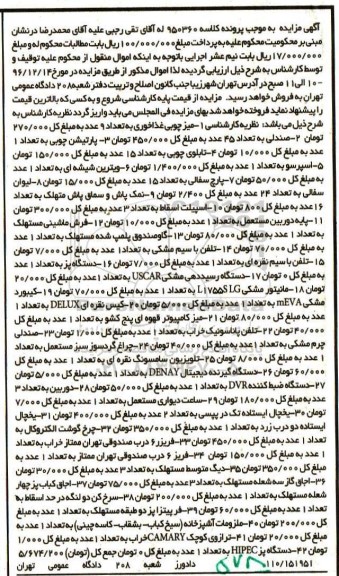 آگهی مزایده به موجب پرونده کلاسه ۹۵۰۳۶۰ له آقای تقی رجبی علیه آقای محمدرضا درنشان
مبنی بر محکومیت محکوم علیه به پرداخت مبلغ ۱۰۰/۰۰۰/۰۰۰ریال بابت مطالبات محکوم له و مبلغ
۱۷/۰۰۰/۰۰۰ریال بابت نیم عشر اجرایی باتوجه به اینکه اموال منقول از محکوم علیه توقیف و
توسط کارشناس به شرح ذیل ارزیابی گردیده لذا اموال مذکور از طریق مزایده در مورخ ۹۶/۱۲/۱۴
۱۰ الی ۱۱ صبح در آدرس تهران شهرزیبا جنب کانون اصلاح و تربیت دفتر شعبه ۲۰۸ دادگاه عمومی
تهران به فروش خواهد رسید. مزایده از قیمت پایه کارشناسی شروع و به کسی که بالاترین قیمت
را پیشنهاد نماید فروخته خواهد شد بهای مزایده فی المجلس می باید واریز گردد نظریه کارشناس به
شرح ذیل می باشد: نظریه کارشناسی ۱-میز چوبی غذاخوری به تعداد ۹ عدد به مبلغ کل ۲۷۰/۰۰۰
تومان ۲-صندلی به تعداد ۴۵ عدد به مبلغ کل ۴۵۰/۰۰۰ تومان ۳- پارتیشن چوبی به تعداد ۱
عدد به مبلغ کل ۱۰/۰۰۰ تومان ۴-تابلوی چوبی به تعداد ۱۵ عدد به مبلغ کل ۱۵۰/۰۰۰ تومان
۵-اسپرسو به تعداد ۱ عدد به مبلغ کل ۱/۴۰۰/۰۰۰ تومان ۶-ویترین شیشه ای به تعداد ۱ عدد
به مبلغ کل ۵۰/۰۰۰ تومان ۷-پارچ سفالی به تعداد ۱۵ عدد به مبلغ کل ۱۵/۰۰۰ تومان ۸-لیوان
سفالی به تعداد ۲۴ عدد به مبلغ کل ۲/۴۰۰ تومان ۹-نمک پاش و سماق پاش متهلک به تعداد
۱۶ عدد به مبلغ کل ۸۰۰ تومان ۱۰-اسپیلت اسقاط به تعداد ۳ عدد به مبلغ کل ۳۰۰/۰۰۰ تومان
۱۱-پایه دوربین مستعمل به تعداد ۱ عدد به مبلغ کل ۱۰/۰۰۰ تومان ۱۲-فرش ماشینی مستهلک
به تعداد ۱ عدد به مبلغ کل ۸۰/۰۰۰ تومان ۱۳-گاوصندوق پلمپ شده مستهلک به تعداد ۱ عدد
به مبلغ کل ۷۰/۰۰۰ تومان ۱۴-تلفن با سیم مشکی به تعداد ۱ عدد به مبلغ کل ۷/۰۰۰ تومان
۱۵-تلفن با سیم نقره ای به تعداد ۱ عدد به مبلغ کل ۷/۰۰۰ تومان ۱۶-دستگاه پز به تعداد ۱ عدد
به مبلغ کل ۰ تومان ۱۷-دستگاه رسید دهی مشکی USCAR به تعداد ۱ عدد به مبلغ کل ۲۰/۰۰۰
تومان ۱۸-مانیتور مشکی L1755S LG به تعداد ۱ عدد به مبلغ کل ۷۰/۰۰۰ تومان ۱۹-کیبورد
مشکی mEVA به تعداد ۱ عدد به مبلغ کل ۵/۰۰۰ تومان ۲۰-کیس نقره ای DELUX به تعداد ۱
عدد به مبلغ کل ۸۰/۰۰۰ تومان ۲۱-میز کامپیوتر قهوه ای پنج کشو به تعداد ۱ عدد به مبلغ کل
۴۰/۰۰۰ تومان ۲۲-تلفن پاناسونیک خراب به تعداد ۱ عدد به مبلغ کل ۱/۰۰۰ تومان ۲۳-صندلی
چرم مشکی به تعداد ۱ عدد به مبلغ کل ۴۰/۰۰۰ تومان ۲۴-چراغ گردسوز سبز مستعمل به تعداد
۱ عدد به مبلغ کل ۸/۰۰۰ تومان ۲۵-تلویزیون سامسونگ نقره ای به تعداد ۱ عدد به مبلغ کل
۶۰/۰۰۰ تومان ۲۶-دستگاه گیرنده دیجیتال DENAY به تعداد ۱ عدد به مبلغ کل ۵/۰۰۰ تومان
۲۷-دستگاه ضبط کننده DVR به تعداد ۱ عدد به مبلغ کل ۵۰/۰۰۰ تومان ۲۸-دوربین به تعداد ۳
عدد به مبلغ کل ۱۸۰/۰۰۰ تومان ۲۹-ساعت دیواری مستعمل به تعداد ۱ عدد به مبلغ کل ۷/۰۰۰
تومان ۳۰-یخچال ایستاده تک در پپسی به تعداد ۲ عدد به مبلغ کل ۴۰۰/۰۰۰ تومان ۳۱-یخچال
ایستاده دو درب زرد به تعداد ۱ عدد به مبلغ کل ۳۵۰/۰۰۰ تومان ۳۲-چرخ گوشت الکتروکال به
تعداد ۱ عدد به مبلغ کل ۴۵۰/۰۰۰ تومان ۳۳-فریزر ۶ درب صندوقی تهران ممتاز خراب به تعداد
۱ عدد به مبلغ کل ۱۵۰/۰۰۰ تومان ۳۴-فریزر ۶ درب صندوقی تهران ممتاز به تعداد ۱ عدد به
مبلغ کل ۳۵۰/۰۰۰ تومان ۳۵-دیگ متوسط مستهلک به تعداد ۳ عدد به مبلغ کل ۳۰/۰۰۰ تومان
۳۶-اجاق گاز سه شعله مستهلک به تعداد ۳ عدد به مبلغ کل ۷۵/۰۰۰ تومان ۳۷-اجاق کباب پز چهار
شعله مستهلک به تعداد ۱ عدد به مبلغ کل ۲۰۰/۰۰۰ تومان ۳۸-سرخ کن دو لنگه در حد اسقاط به
تعداد ۱ عدد به مبلغ کل ۶۰/۰۰۰ تومان ۳۹-فر پیتزا پز دو طبقه مستهلک به تعداد ۱ عدد به مبلغ
کل ۲۰۰/۰۰۰ تومان ۴۰-ملزومات آشپزخانه (سیخ کباب- بشقاب- کاسه چینی) به تعداد ۱ عدد به
مبلغ کل ۲۰/۰۰۰ تومان ۴۱-ترازوی کوچک CAMARY خراب به تعداد ۱ عدد به مبلغ کل ۱/۰۰۰
تومان ۴۲-دستگاه پز HIPEC به تعداد ۱ عدد به مبلغ کل ۰ تومان جمع کل (تومان) ۵/۶۷۴/۲۰۰
۱۱۰/۱۵۱۹۵۱ دادورز شعبه ۲۰۸ دادگاه عمومی تهران